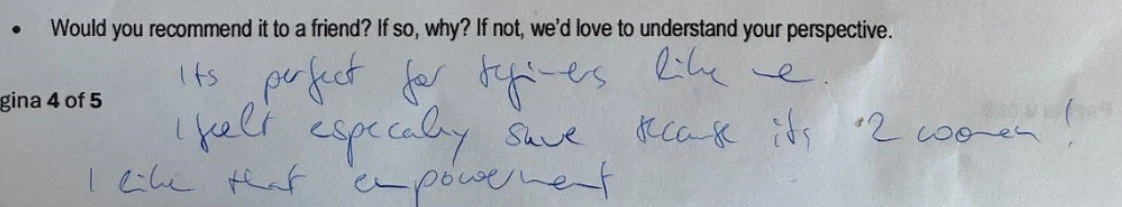 • Would you recommend it to a friend? If so, why? If not, we'd love to understand your perspective.
Its perfect for beginers like me.
gina 4 of 5
I feelt especaly save because its 2 women!
I like that empowerment